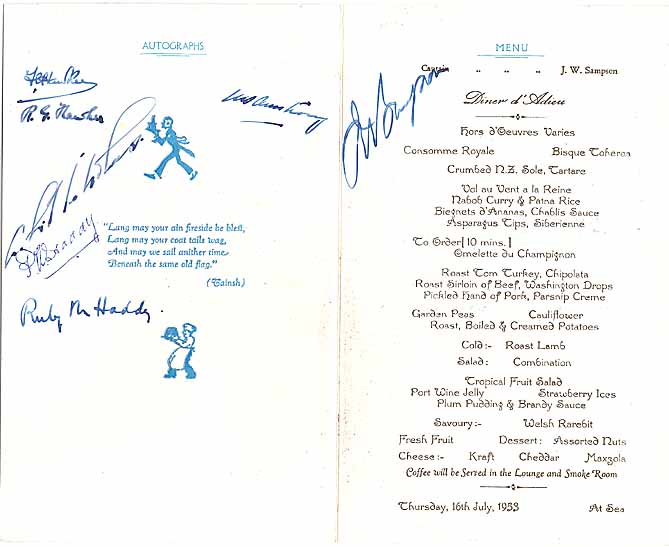 AUTOGRAPHS
R. G. Hawkes
"Lang may your ain fireside be blest,
Lang may your coat tails wag,
And may we sail anither time
Beneath the same old flag."
(Tainsh)
Ruby M Haddy.
MENU
Captain " " " J. W. Sampson
Diner d'Adieu
Hors d'Oeuvres Varies
Consomme Royale Bisque Toheroa
Crumbed N.Z. Sole, Tartare
Vol au Vent a la Reine
Nabob Curry & Patna Rice
Biegnets d'Ananas, Chablis Sauce
Asparagus Tips, Siberienne
To Order [10 mins.]
Omelette du Champignon
Roast Tom Turkey, Chipolata
Roast Sirloin of Beef, Washington Drops
Pickled Hand of Pork, Parsnip Creme
Garden Peas Cauliflower
Roast, Boiled & Creamed Potatoes
Cold:- Roast Lamb
Salad: Combination
Tropical Fruit Salad
Port Wine Jelly Strawberry Ices
Plum Pudding & Brandy Sauce
Savoury:- Welsh Rarebit
Fresh Fruit Dessert: Assorted Nuts
Cheese:- Kraft Cheddar Maxzola
Coffee will be Served in the Lounge and Smoke Room
Thursday, 16th July, 1953 At Sea